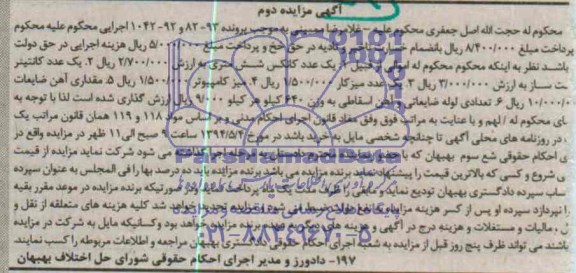 آگهی مزایده دوم
محکوم له حجت اله اصل جعفری محکوم علیه به موجب پرونده ۹۳-۸۲ و ۹۲-۱۰۴۲ اجرایی محکوم علیه محکوم
پرداخت مبلغ ۸/۴۰۰/۰۰۰ ریال بانضمام خسارت تاخیر تادیه در حق و پرداخت مبلغ ریال هزینه اجرایی در حق دولت
باشد نظر به اینکه محکوم محکوم له اموالی از قبیل ۱. یک عدد کانکس شش متری به ارزش ۲/۷۰۰/۰۰۰ ریال ۲. یک عدد کانتینر
ست ساز به ارزش ۳/۰۰۰/۰۰۰ ریال ۳. عدد میز کار ۱/۵۰۰/۰۰۰ ریال ۴. میز کامپیوتر ۱/۵۰۰/۰۰۰ ریال ۵. مقداری آهن ضایعات
۱۰/۰۰۰/۰ ریال ۶. تعدادی لوله ضایعاتی و آهن اسقاطی به وزن ۶۴۰ کیلو هر کیلو ۹/۰۰۰ ریال ارزش گذاری شده است لذا با توجه به
ای محکوم له / لهم و با عنایت به مراتب فوق وفق مفاد قانون اجرای احکام مدنی و بر اساس مواد ۱۱۸ و ۱۱۹ همان قانون مراتب یک
در روزنامه های محلی آگهی تا چنانچه شخصی مایل به خرید باشد در مورخ ۱۳۹۴/۵/۴ ساعت ۹ صبح الی ۱۱ ظهر در مزایده واقع در
ی احکام حقوقی شع سوم بهبهان که با حضور نماینده محترم دادستان به مرحله اجرا گذاشته می شود شرکت نماید مزایده از قیمت
ی شروع و کسی که بالاترین قیمت را پیشنهاد نماید برنده مزایده می باشد برنده مزایده باید ده درصد بها را فی المجلس به عنوان سپرده
ساب سپرده دادگستری بهبهان تودیع نماید و مابقی را ظرف مدت یک ماه پرداخت نماید در صورتیکه برنده مزایده در موعد مقرر بقیه
را نپردازد سپرده او پس از کسر هزینه مزایده به نفع دولت ضبط می شود و مزایده تجدید خواهد شد کلیه هزینه های متعلقه از نقل و
، مالیات و مستغلات و هزینه درج در آگهی و هزینه های دیگر به عهده برنده مزایده خواهد بود و کسانیکه مایل به شرکت در مزایده
باشند می تواند ظرف پنج روز قبل از مزایده به شعبه اجرای احکام حقوقی دادگستری بهبهان مراجعه و اطلاعات مربوطه را کسب نمایند
۱۹۷- دادورز و مدیر اجرای احکام حقوقی شورای حل اختلاف بهبهان
ParsNamadData
پایگاه اطلاع رسانی مناقصه و مزایده
۰۲۱-۸۸۳۴۹۶۷۰-۵